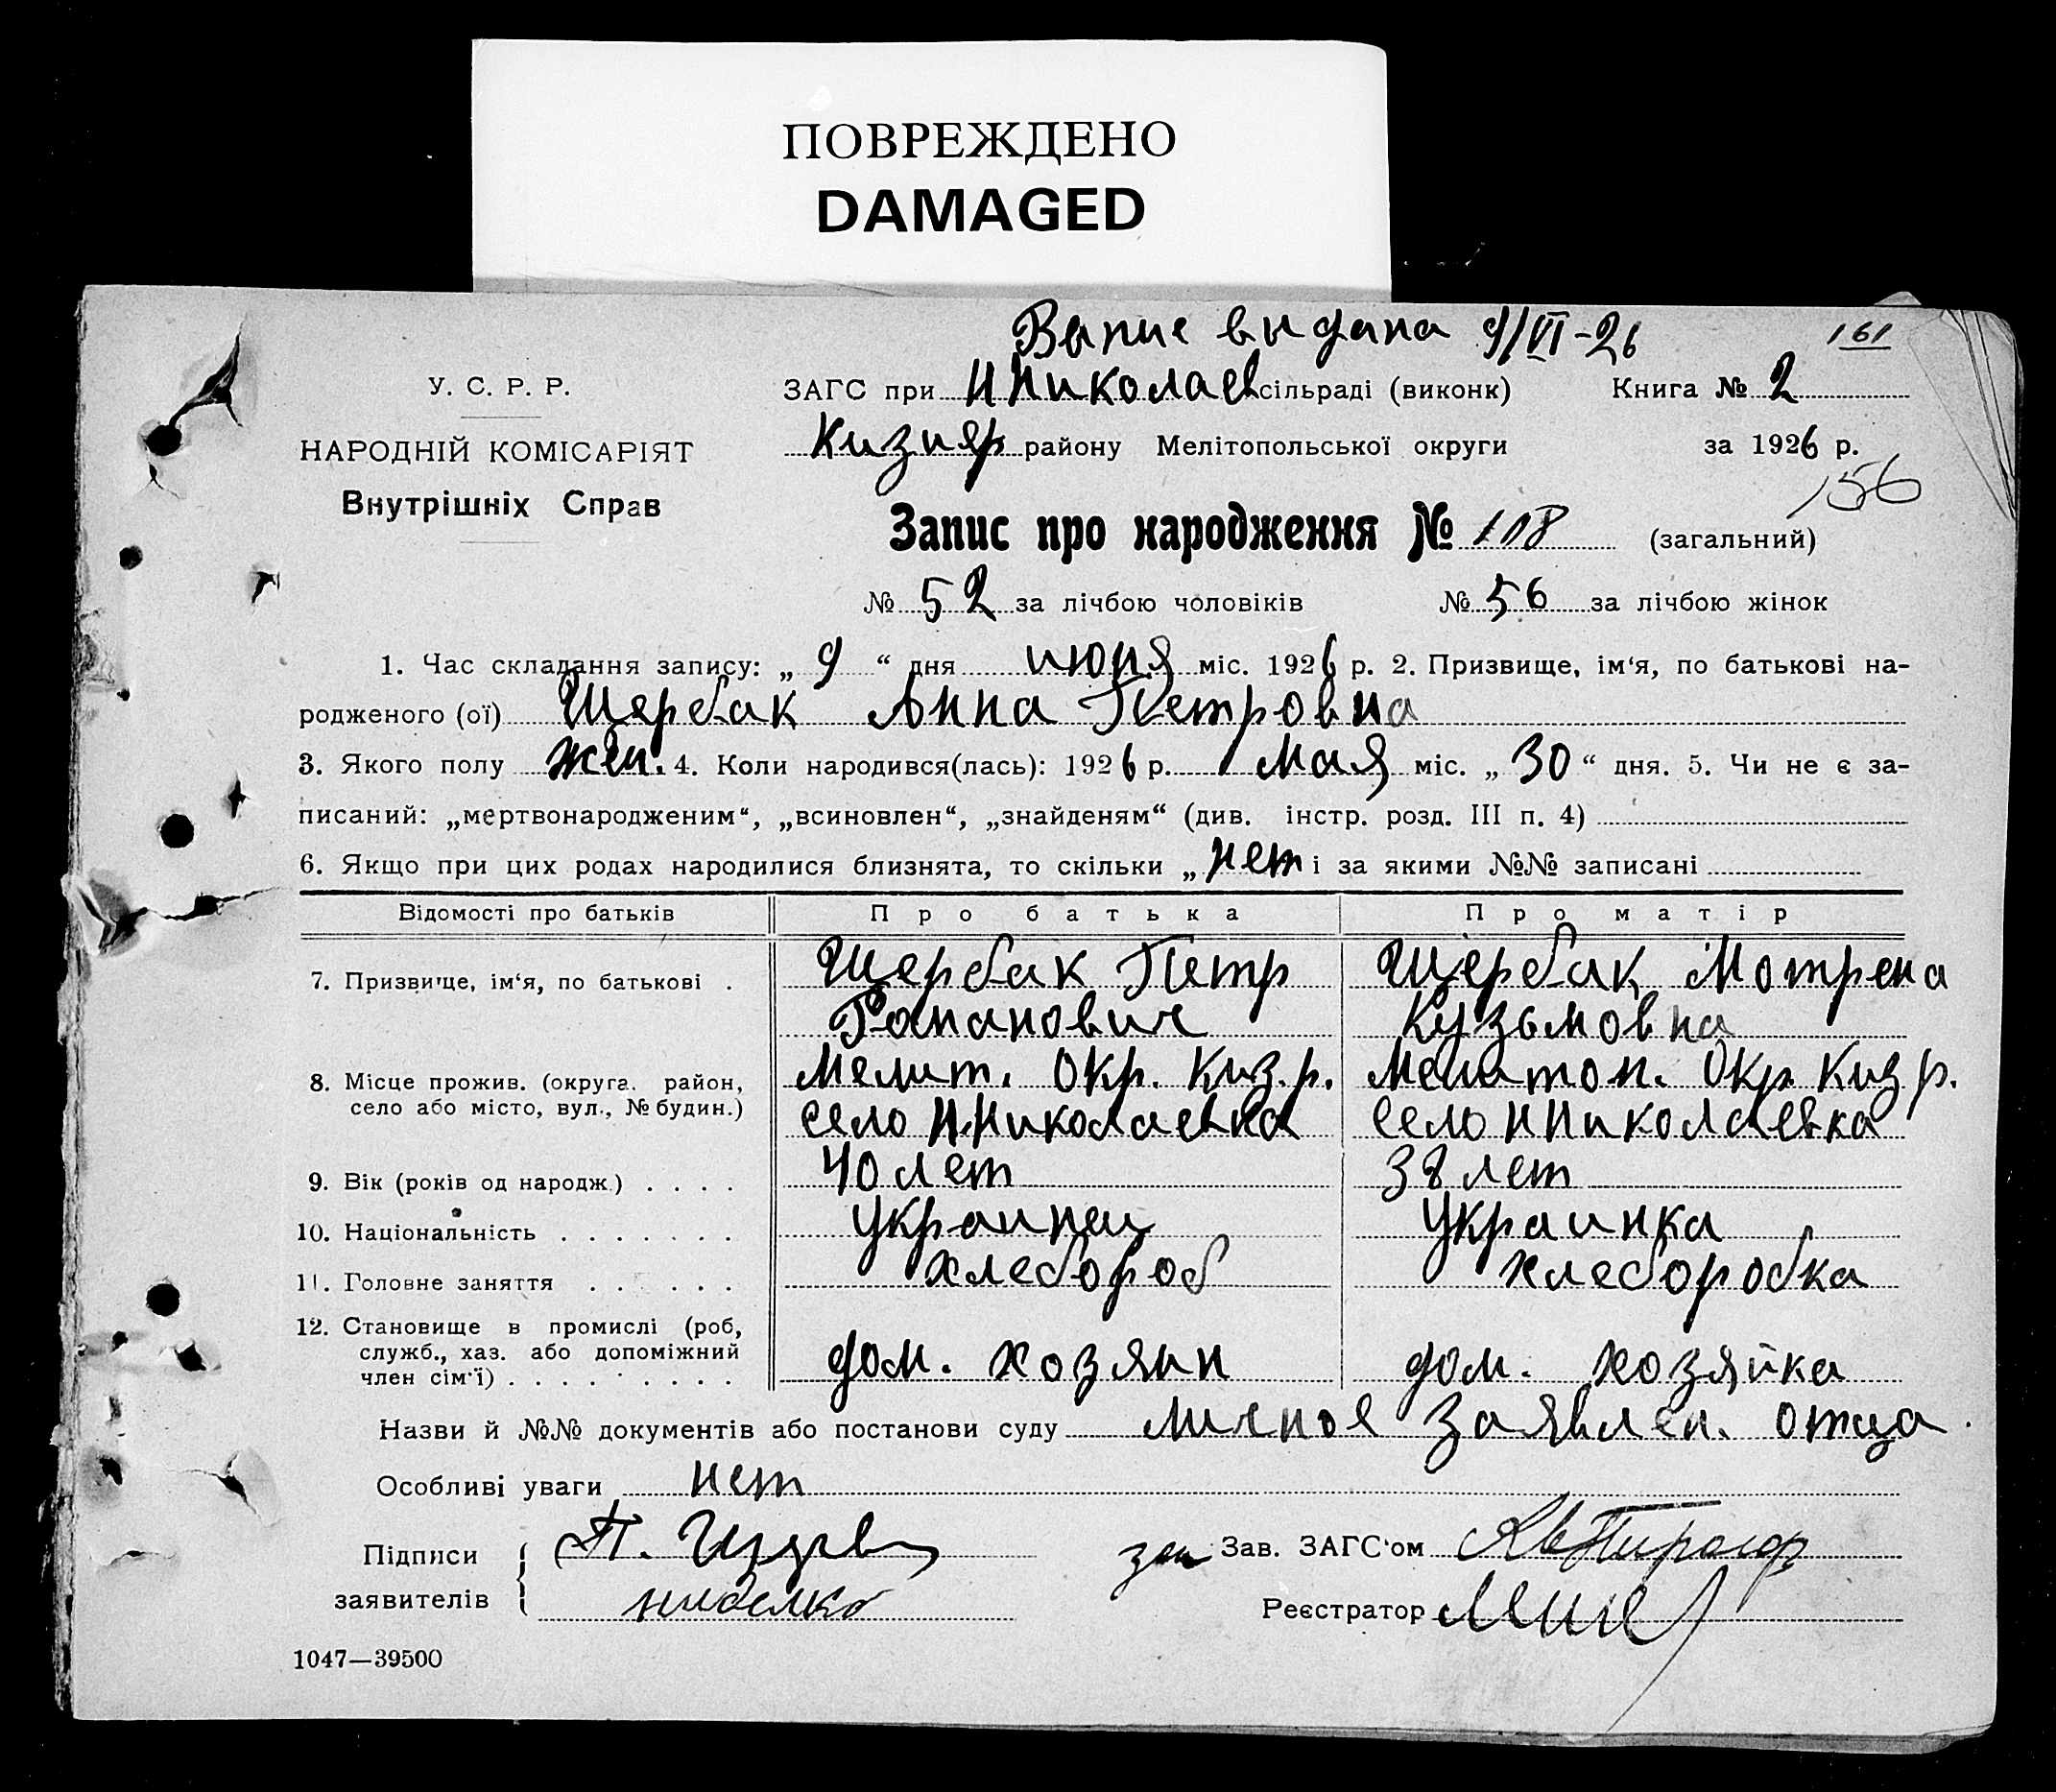 ПОВРЕЖДЕНО
DAMAGED
Выпис выдана 9/VI-26
161
У. С. Р. Р.
НАРОДНІЙ КОМІСАРІЯТ
Внутрішніх Справ
ЗАГС при Н Николаев сільраді (виконк) Книга № 2
Кизияр району Мелітопольської округи за 1926 р.
156
Запис про народження № 108 (загальний)
№ 52 за лічбою чоловіків № 56 за лічбою жінок
1. Час складання запису: „ 9 “ дня июня міс. 1926 р. 2. Призвище, ім‘я, по батькові на-
родженого (ої) Щербак Анна Петровна
3. Якого полу жен. 4. Коли народився(лась): 1926 р. мая міс. „ 30 “ дня. 5. Чи не є за-
писаний: „мертвонародженим“, „всиновлен“, „знайденям“ (див. інстр. розд. III п. 4)
6. Якщо при цих родах народилися близнята, то скільки „ нет і за якими №№ записані
Відомості про батьків Про батька Про матір
7. Призвище, ім‘я, по батькові . Щербак Петр Щербак Мотрена
Романович Кузьмовна
8. Місце прожив. (округа. район, Мелит. Окр. Киз. р. Мелитоп. Окр Киз р.
село або місто, вул., № будин.) село Н.Николаевка село Н Николаевка
9. Вік (років од народж.) . . . . 40 лет 38 лет
10. Національність . . . . . . . украинец украинка
11. Головне заняття . . . . . . хлебороб хлеборобка
12. Становище в промислі (роб,
служб., хаз. або допоміжний дом. хозяин дом. хозяйка
член сім‘ї) . . . . . . . . . .
Назви й №№ документів або постанови суду личное заявлен. отца.
Особливі уваги нет
Підписи П. за Зав. ЗАГС‘ом
заявителів Реєстратор
1047—39500